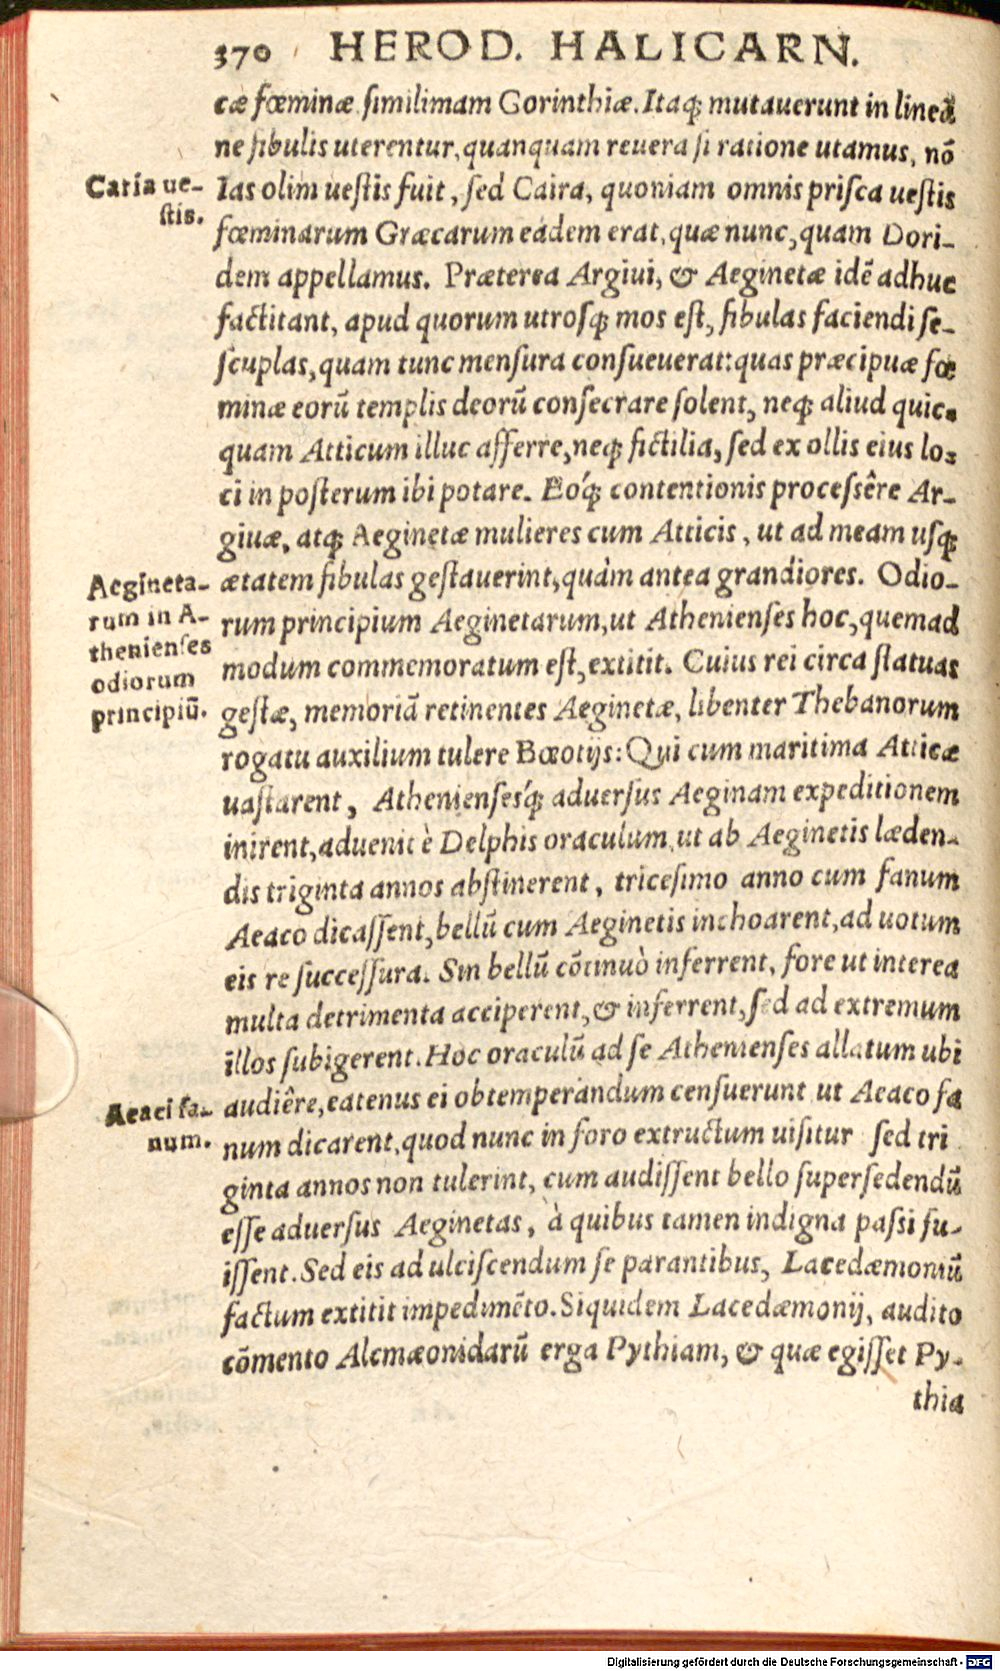 370 HEROD. HALICARN.
cæ fœminæ similimam Gorinthiæ. Itaqꝫ mutauerunt in lineã
ne fibulis uterentur, quanquam reuera si ratione utamus, nõ
Caria ue-
stis.
Ias olim uestis fuit, sed Caira, quoniam omnis prisca uestis
fœminarum Græcarum eadem erat, quæ nunc, quam Dori-
dem appellamus. Præterea Argiui, & Aeginetæ idẽ adhuc
factitant, apud quorum utrosqꝫ mos est, fibulas faciendi se-
scuplas, quam tunc mensura consueuerat: quas præcipuæ fœ
minæ eorũ templis deorũ consecrare solent, neqꝫ aliud quic-
quam Atticum illuc afferre, neqꝫ fictilia, sed ex ollis eius lo-
ci in posterum ibi potare. Eóqꝫ contentionis processêre Ar-
giuæ, atqꝫ Aeginetæ mulieres cum Atticis, ut ad meam usqꝫ
ætatem fibulas gestauerint, quàm antea grandiores. Odio-
Aegineta-
rum in A-
thenienses
odiorum
principiũ.
rum principium Aeginetarum, ut Athenienses hoc, quemad
modum commemoratum est, extitit. Cuius rei circa statuas
gestæ, memoriã retinentes Aeginetæ, libenter Thebanorum
rogatu auxilium tulere Bœotijs: Qui cum maritima Atticæ
uastarent, Atheniensesq́ꝫ aduersus Aeginam expeditionem
inirent, aduenit è Delphis oraculum, ut ab Aeginetis læden-
dis triginta annos abstinerent, tricesimo anno cum fanum
Aeaco dicassent, bellũ cum Aeginetis inchoarent, ad uotum
eis re successura. Sin bellũ cõtinuò inferrent, fore ut interea
multa detrimenta acciperent, & inferrent, sed ad extremum
illos subigerent. Hoc oraculũ ad se Athenienses allatum ubi
Aeaci fa-
num.
audiêre, eatenus ei obtemperandum censuerunt ut Aeaco fa
num dicarent, quod nunc in foro extructum uisitur sed tri
ginta annos non tulerint, cum audissent bello supersedendũ
esse aduersus Aeginetas, à quibus tamen indigna passi fu-
issent. Sed eis ad ulciscendum se parantibus, Lacedæmoniũ
factum extitit impedimẽto. Siquidem Lacedæmonij, audito
cõmento Alcmæonidarũ erga Pythiam, & quæ egisset Py-
thia
Digitalisierung gefördert durch die Deutsche Forschungsgemeinschaft - DFG